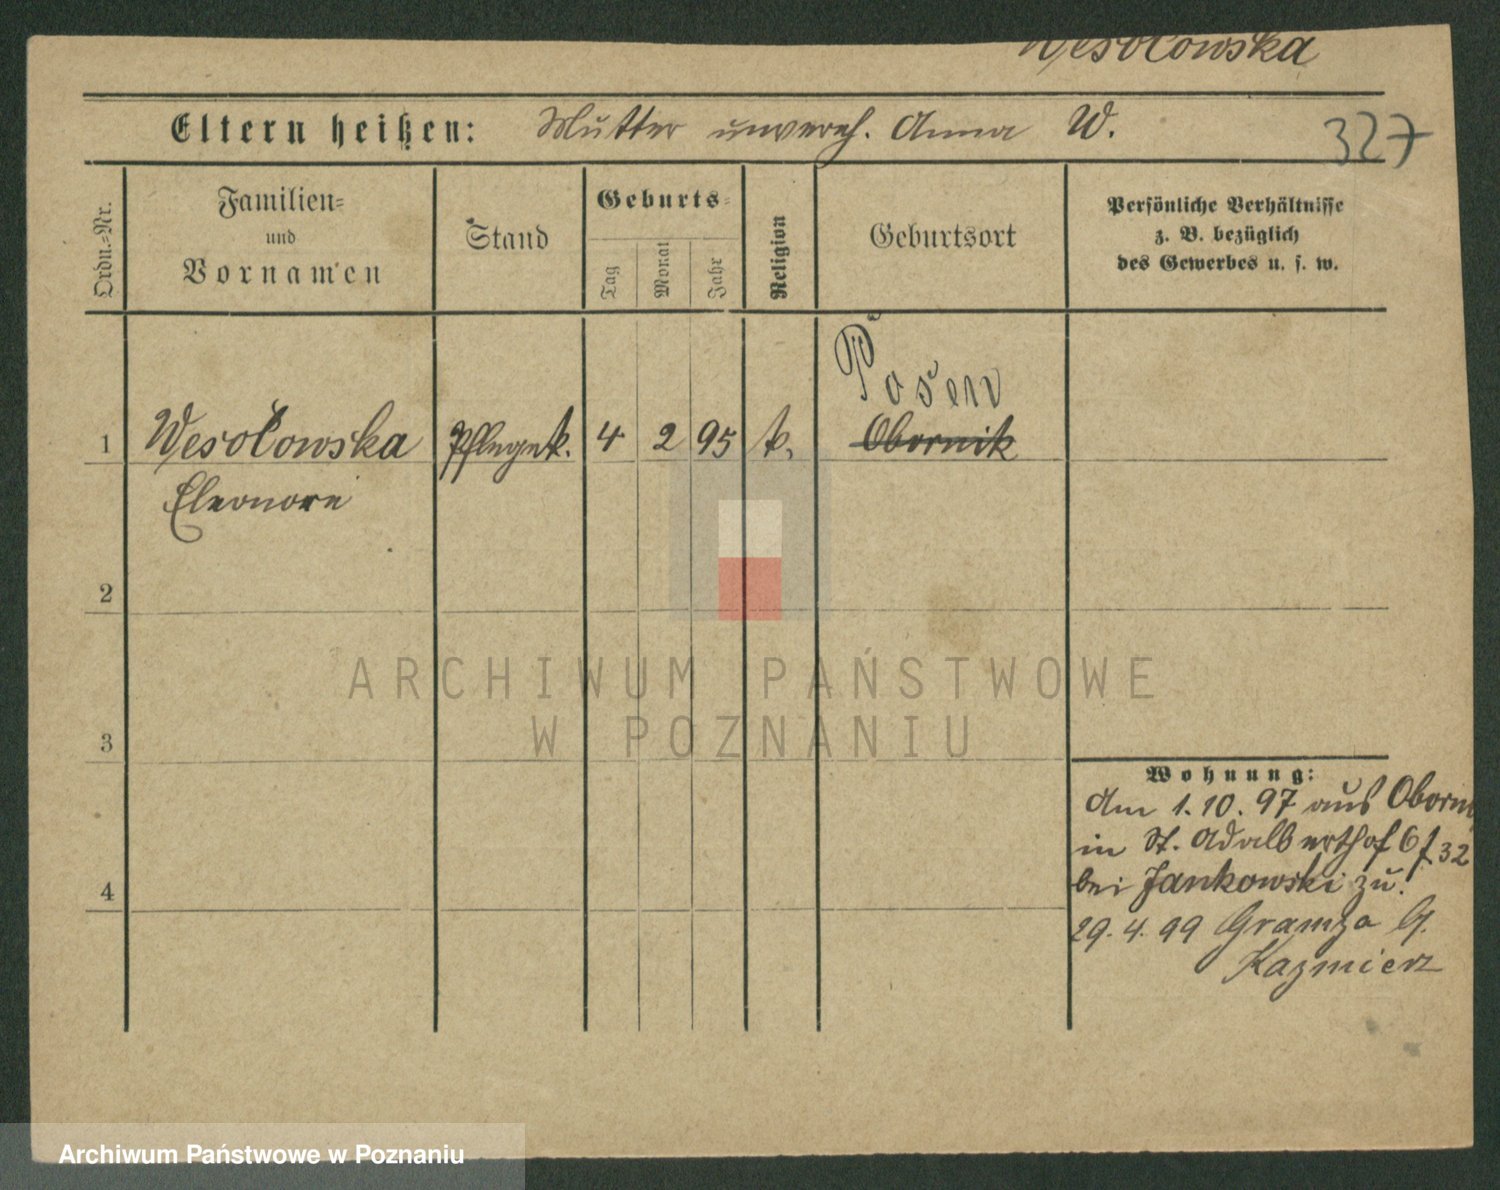 Wesołowska
Eltern heißen: Mutter unvereh. Anna W.
327
Ordn.=Nr.
Familien=
und
Vornamen
Stand
Geburts=
Tag
Monat
Jahr
Religion
Geburtsort
Persönliche Verhältnisse
z. B. bezüglich
des Gewerbes u. s. w.
Posen
1 Wesołowska Pflegek. 4 2 95 k. Obornik
Eleonore
2
3
4
ARCHIWUM PAŃSTWOWE
W POZNANIU
Wohnung:
Am 1.10.97 aus Oborni
in St. Adalberthof 6 f 32
bei Jankowski zu.
29.4.99 Gramza G.
Kazmierz
Archiwum Państwowe w Poznaniu